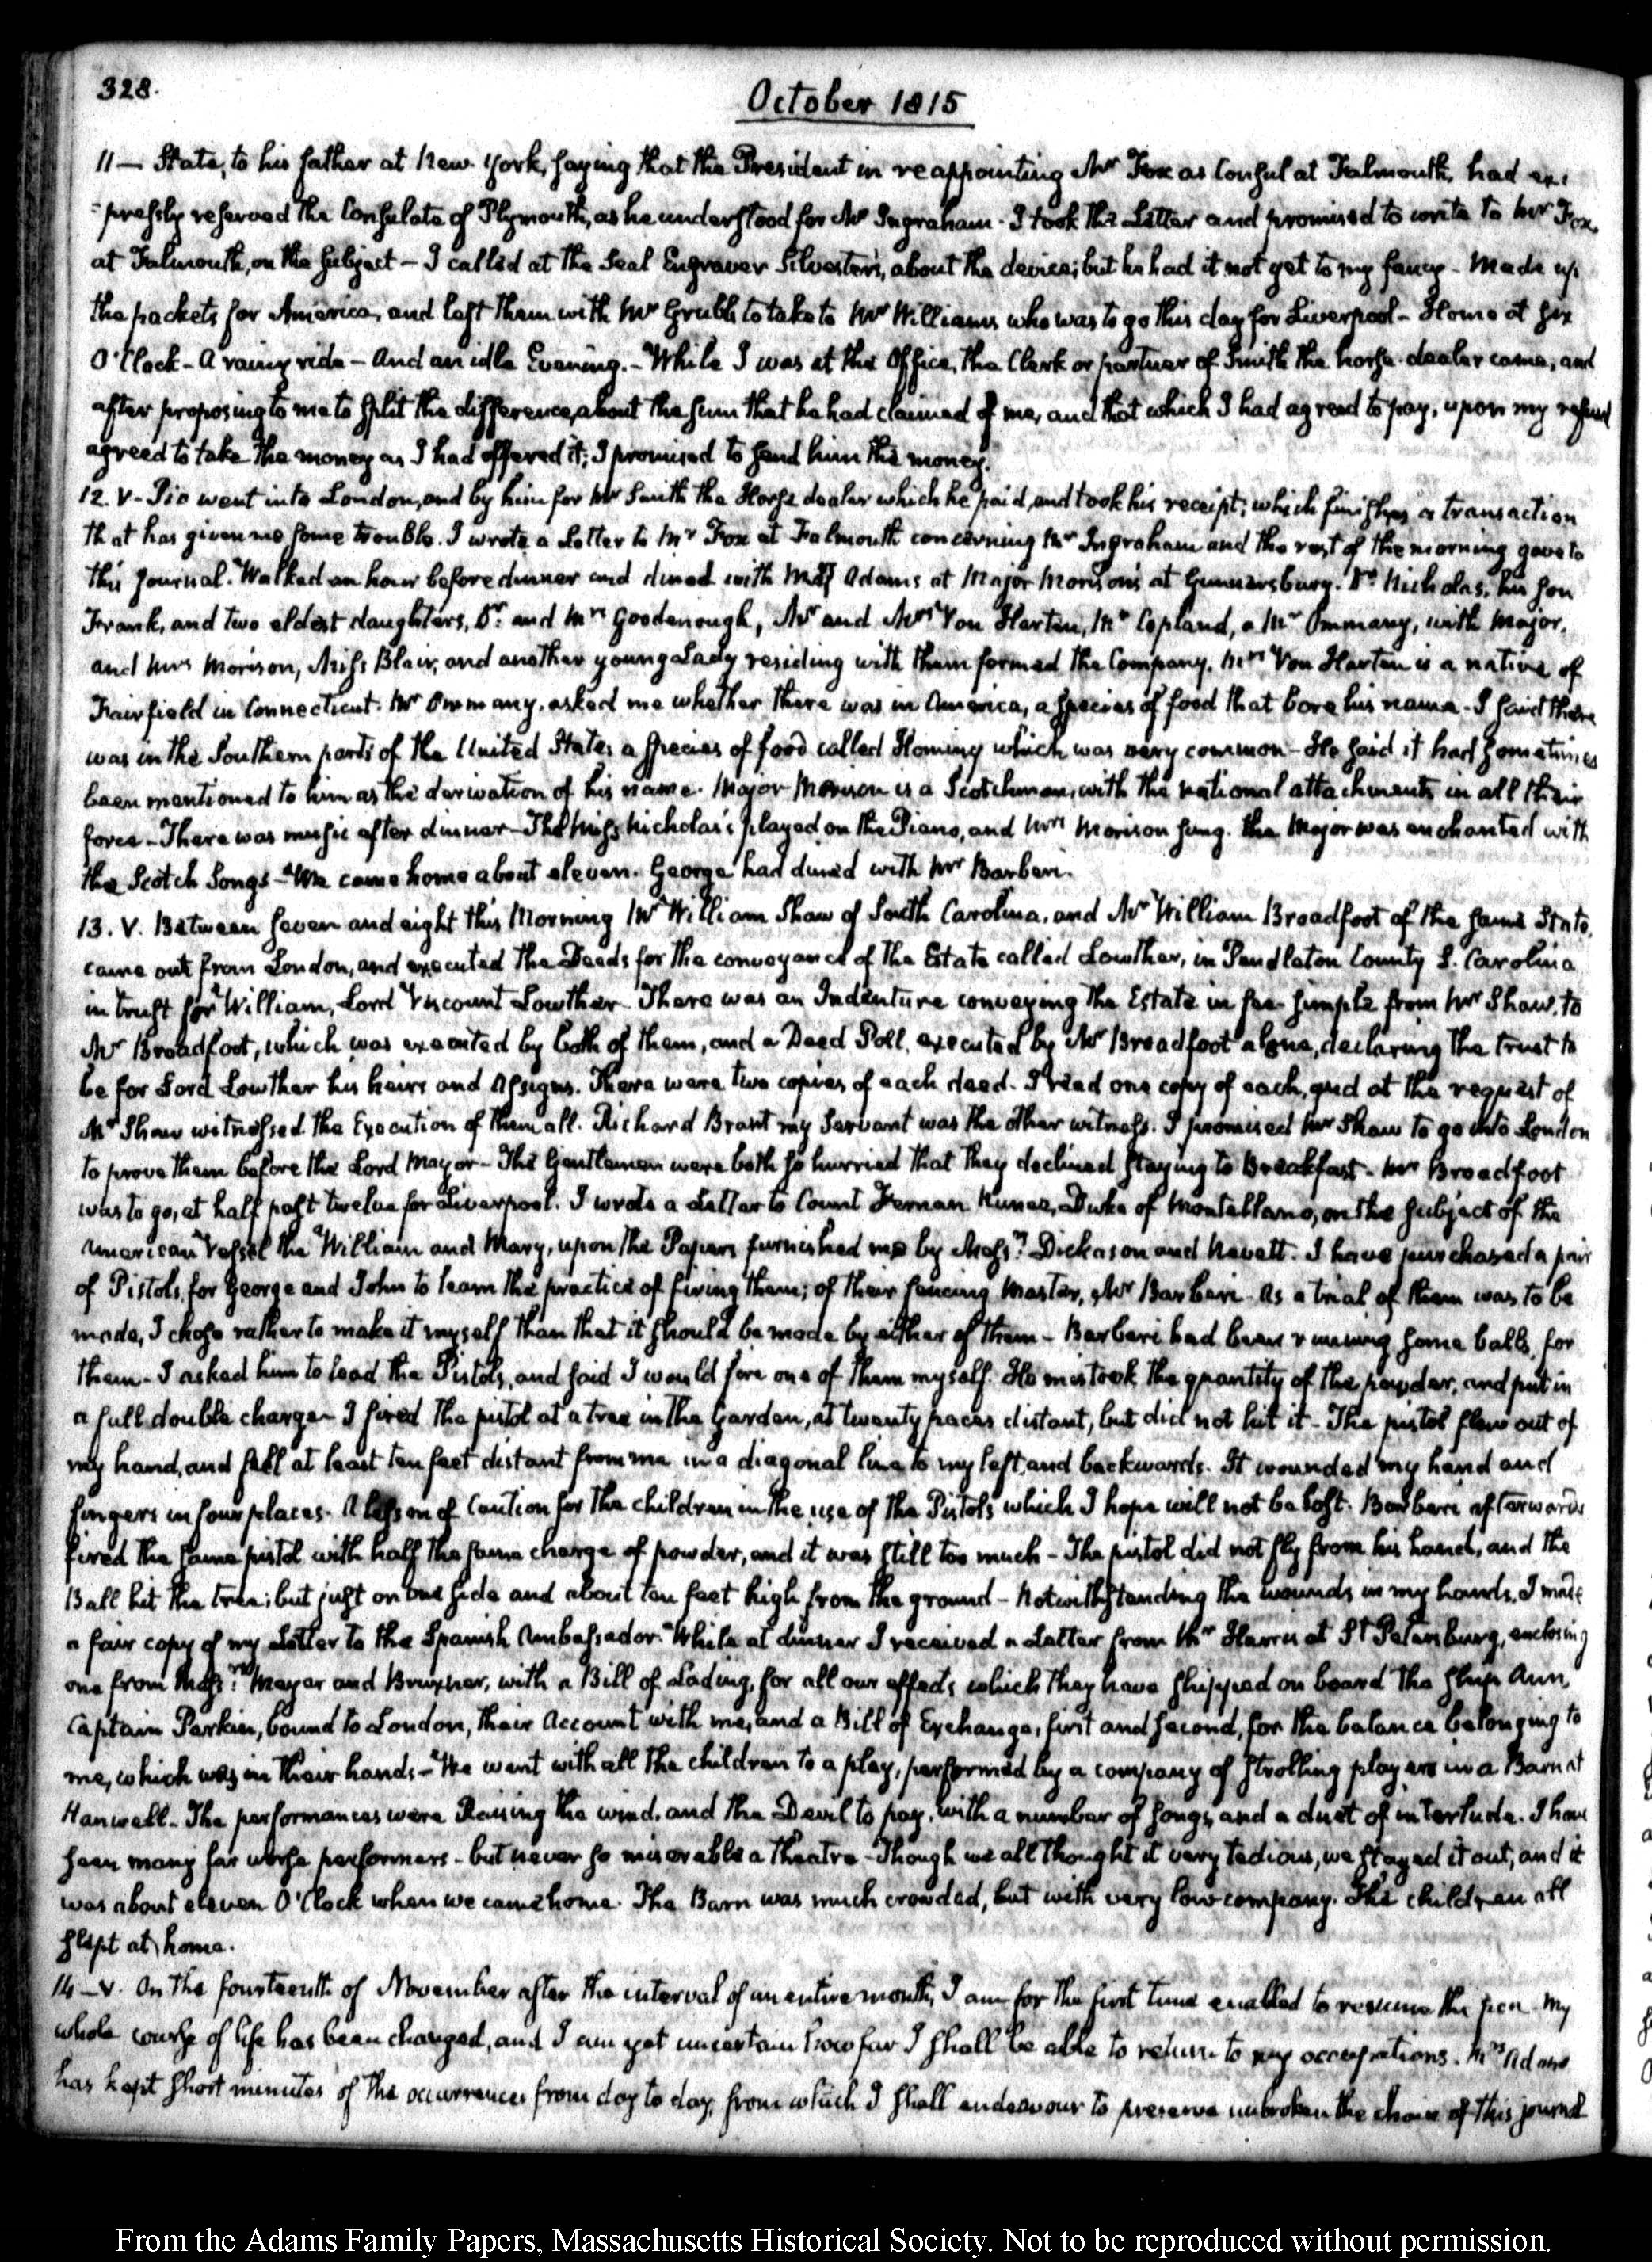 328.
October 1815
11 — State, to his father at New-York, saying that the President in reappointing Mr Fox as Consul at Falmouth, had ex-
-pressly reserved the Consulate of Plymouth, as he understood for Mr Ingraham - I took the Letter and promised to write to Mr Fox
at Falmouth, on the subject - I called at the Seal Engraver Silvester's, about the device; but he had it not yet to my fancy - Made up
the packets for America, and left them with Mr Grubb to take to Mr Williams who was to go this day for Liverpool - Home at six
O'Clock - A rainy ride - And an idle Evening. - While I was at the Office, the Clerk or partner of Smith the horse-dealer came, and
after proposing to me to split the difference, about the sum that he had claimed of me, and that which I had agreed to pay, upon my refusal
agreed to take the money as I had offered it; I promised to send him the money.
12. V - Pio went into London, and by him for Mr Smith the Horse dealer which he paid, and took his receipt; which finishes a transaction
that has given me some trouble. I wrote a Letter to Mr Fox at Falmouth concerning Mr Ingraham and the rest of the morning gave to
this Journal. Walked an hour before dinner and dined with Mrs Adams at Major Morison's at Gunnersbury. Dr Nicholas, his son
Frank, and two eldest daughters, Dr and Mrs Goodenough, Mr and Mrs Von Harten, Mr Copland, a Mr Ommany, with Major,
and Mrs Morison, Miss Blair, and another young Lady residing with them formed the Company. Mrs Von Harten is a native of
Fairfield in Connecticut. Mr Ommany, asked me whether there was in America, a species of food that bore his name - I said there
was in the Southern parts of the United States a species of food called Hominy which was very common - He said it had sometimes
been mentioned to him as the derivation of his name. Major Morison is a Scotchman, with the national attachments in all their
force - There was music after dinner - The Miss Nicholas's played on the Piano, and Mrs Morison sung. The Major was enchanted with
the Scotch Songs - We came home about eleven. George had dined with Mr Barberi.
13. V. Between seven and eight this Morning Mr William Shaw of South Carolina, and Mr William Broadfoot of the same State,
came out from London, and executed the Deeds for the conveyance of the Estate called Lowther, in Pendleton County S. Carolina
in trust for William, Lord Viscount Lowther - There was an Indenture conveying the Estate in fee-simple from Mr Shaw, to
Mr Broadfoot, which was executed by both of them, and a Deed Poll, executed by Mr Broadfoot alone, declaring the trust to
be for Lord Lowther his heirs and Assigns. There were two copies of each deed - I read one copy of each, and at the request of
Mr Shaw witnessed the Execution of them all. Richard Brant my Servant was the other witness. I promised Mr Shaw to go into London
to prove them before the Lord Mayor - The Gentlemen were both so hurried that they declined staying to Breakfast - Mr Broadfoot
was to go, at half past twelve for Liverpool. I wrote a Letter to Count Fernan Nunez, Duke of Montellano, on the subject of the
American Vessel the William and Mary, upon the Papers furnished me by Messrs Dickason and Nevett. I have purchased a pair
of Pistols, for George and John to learn the practice of firing them; of their fencing Master, Mr Barberi - As a trial of them was to be
made, I chose rather to make it myself than that it should be made by either of them - Barberi had been running some balls, for
them - I asked him to load the Pistols, and said I would fire one of them myself. He mistook the quantity of the powder, and put in
a full double charge - I fired the pistol at a tree in the Garden, at twenty paces distant, but did not hit it - The pistol flew out of
my hand, and fell at least ten feet distant from me in a diagonal line to my left, and backwards. It wounded my hand and
fingers in four places. A lesson of Caution for the children in the use of the Pistols which I hope will not be lost. Barberi afterwards
fired the same pistol with half the same charge of powder, and it was still too much - The pistol did not fly from his hand, and the
Ball hit the tree; but just on one side and about ten feet high from the ground - Notwithstanding the wounds in my hands, I made
a fair copy of my Letter to the Spanish Ambassador. While at dinner I received a Letter from Mr Harris at St Petersburg, enclosing
one from Messrs Meyer and Bruxner, with a Bill of Lading, for all our effects which they have shipped on board the ship Ann,
Captain Perkin, bound to London, their Account with me, and a Bill of Exchange, first and second, for the balance belonging to
me, which was in their hands - We went with all the children to a play, performed by a company of strolling players in a Barn at
Hanwell - The performances were Raising the wind, and the Devil to pay, with a number of songs, and a duet of interlude. I have
seen many far worse performers - but never so miserable a theatre - Though we all thought it very tedious, we stayed it out, and it
was about eleven O'Clock when we came home. The Barn was much crowded, but with very low company. The children all
slept at home.
14 - V. On the fourteenth of November after the interval of an entire month, I am for the first time enabled to resume the pen. My
whole course of life has been changed, and I am yet uncertain how far I shall be able to return to my occupations. Mrs Adams
has kept short minutes of the occurrences from day to day, from which I shall endeavour to preserve unbroken the chain of this journal
From the Adams Family Papers, Massachusetts Historical Society. Not to be reproduced without permission.